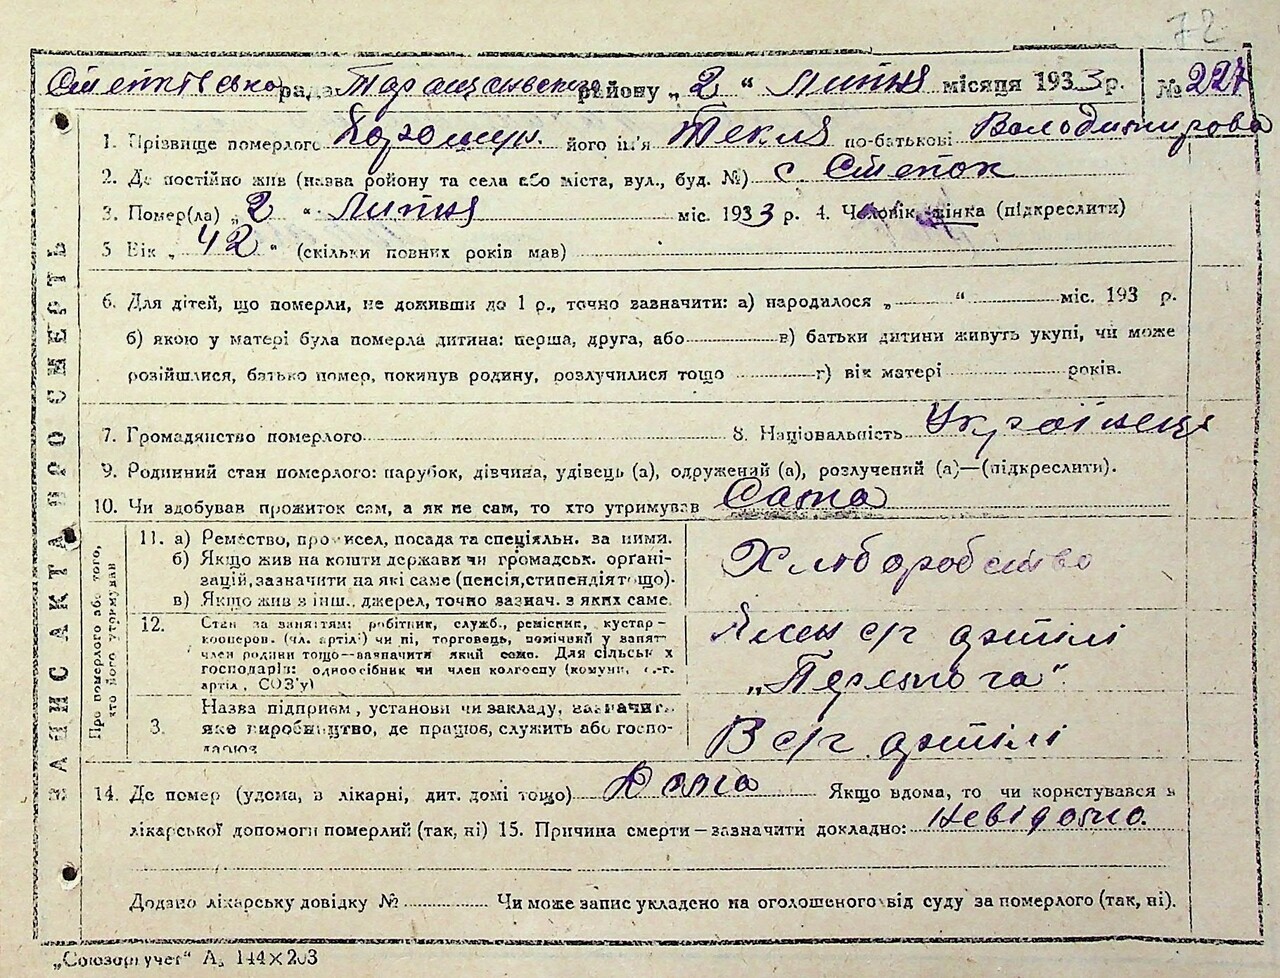 72
рада Таращанського району „2“ Липня місяця 1933 р. № 227
1. Прізвище померлого його ім'я Текля по-батькові Володимирова
2. Де постійно жив (назва району та села або міста, вул., буд. №) с
3. Помер(ла) „2“ Липня міс. 1933 р. 4. Чоловік, жінка (підкреслити)
5 Вік „42“ (скільки повних років мав)
6. Для дітей, що померли, не доживши до 1 р., точно зазначити: а) народилося „ “ міс. 193 р.
б) якою у матері була померла дитина: перша, друга, або в) батьки дитини живуть укупі, чи може
розійшлися, батько помер, покинув родину, розлучилися тощо г) вік матері років.
7. Громадянство померлого 8. Національність Українець
9. Родинний стан померлого: парубок, дівчина, удівець (а), одружений (а), розлучений (а)—(підкреслити).
10. Чи здобував прожиток сам, а як не сам, то хто утримував Сама
ЗАПИС АКТА ПРО СМЕРТЬ
Про померлого або того,
хто його утримував
11. а) Ремество, промисел, посада та спеціяльн. за ними.
б) Якщо жив на кошти держави чи громадськ. органі-
зацій, зазначити на які саме (пенсія, стипендія тощо).
в) Якщо жив з інш., джерел, точно зазнач. з яких саме.
Хліборобство
12. Стан за заняттям: робітник, служб., ремісник, кустар-
кооперов. (чл. артілі) чи ні, торговець, помічний у занят.
член родини тощо—зазначити який саме. Для сільськ х
господарів: одноосібник чи член колгоспу (комуни, с.-г.
артіл, СОЗ'у)
Член с/г артілі
„Перемога“
3. Назва підприєм, установи чи закладу, зазначить
яке виробництво, де працює, служить або госпо-
дарює
В с/г артілі
14. Де помер (удома, в лікарні, дит. домі тощо) Дома Якщо вдома, то чи користувався в
лікарської допомоги померлий (так, ні) 15. Причина смерти—зазначити докладно: Невідомо.
Додано лікарську довідку № Чи може запис укладено на оголошеного від суду за померлого (так, ні).
„Союзоргучет“ А₅ 144×203